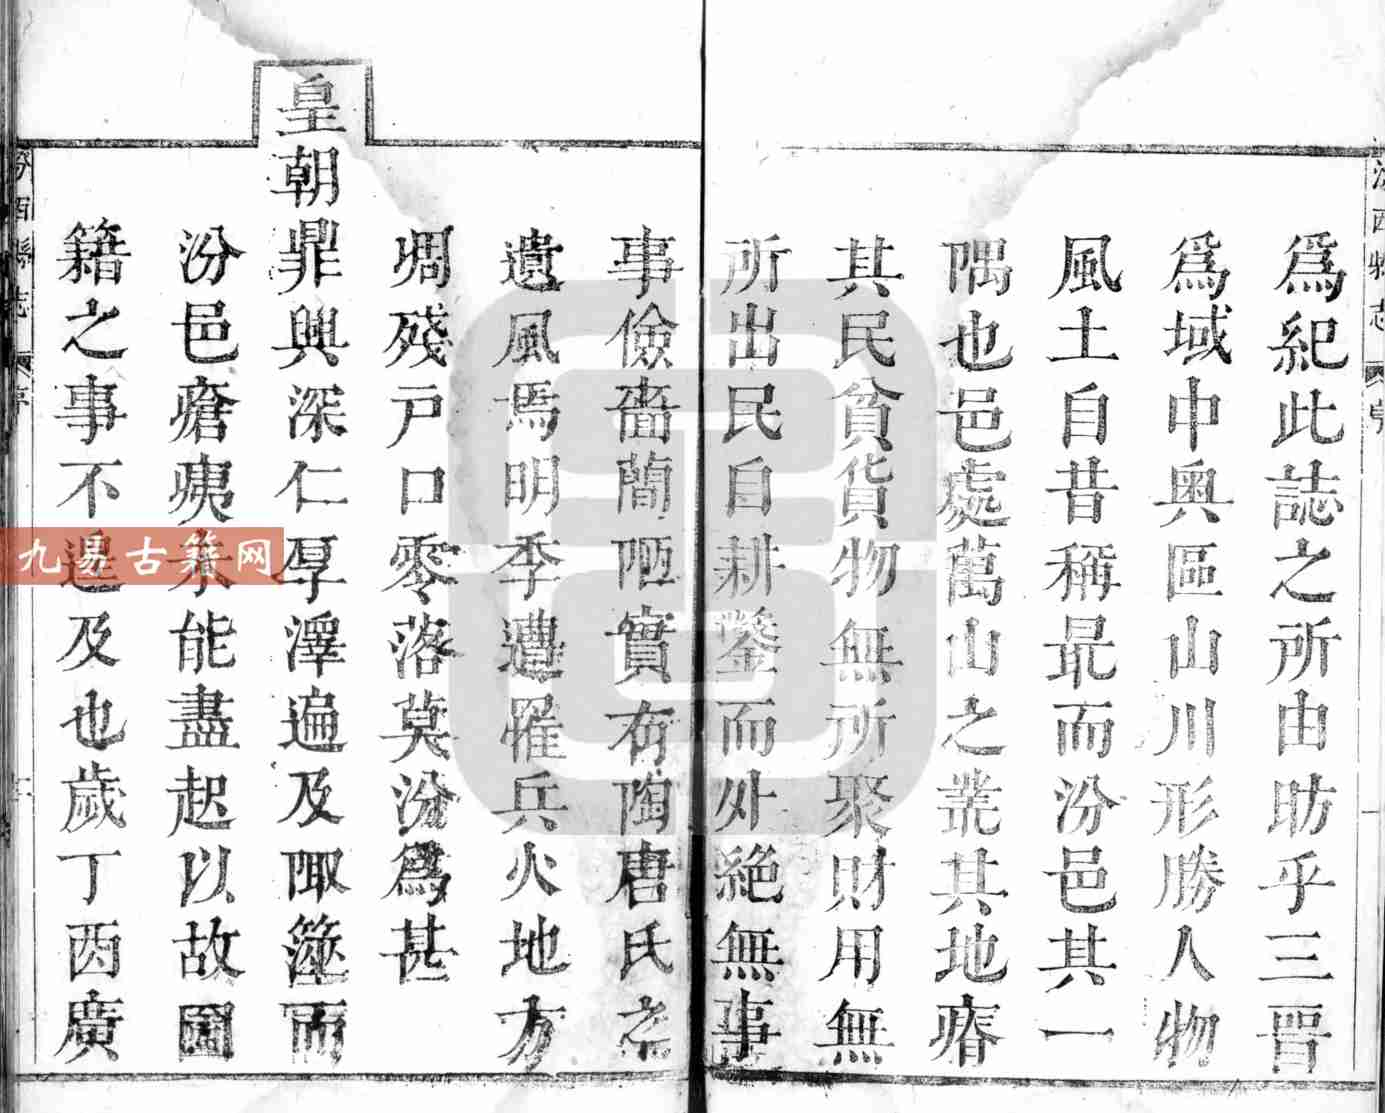 爲紀此誌之所由昉乎三晋
爲域中奧區山川形勝人物
風土自昔稱最而汾邑其一
隅也邑處萬山之叢其地瘠
其民貧貨物無所聚財用無
所出民自耕鑿而外絶無事
事儉嗇簡陋實有陶唐氏之
遺風焉明季遭罹兵火地方
凋殘戸口零落莫汾爲甚
皇朝鼎興深仁厚澤遍及陬澨而
汾邑瘡痍未能盡起以故圖
籍之事不遑及也歲丁酉廣
汾西縣志
九易古籍网